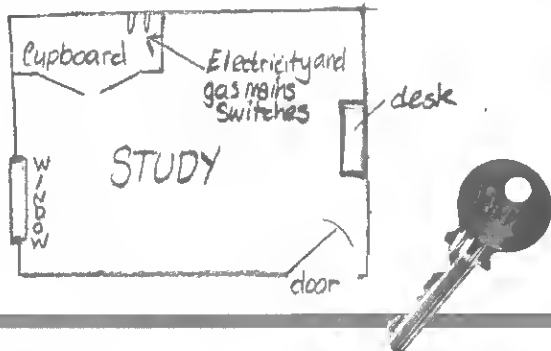 Cupboard
Electricity and
gas mains
Switches
desk
STUDY
WINDOW
door